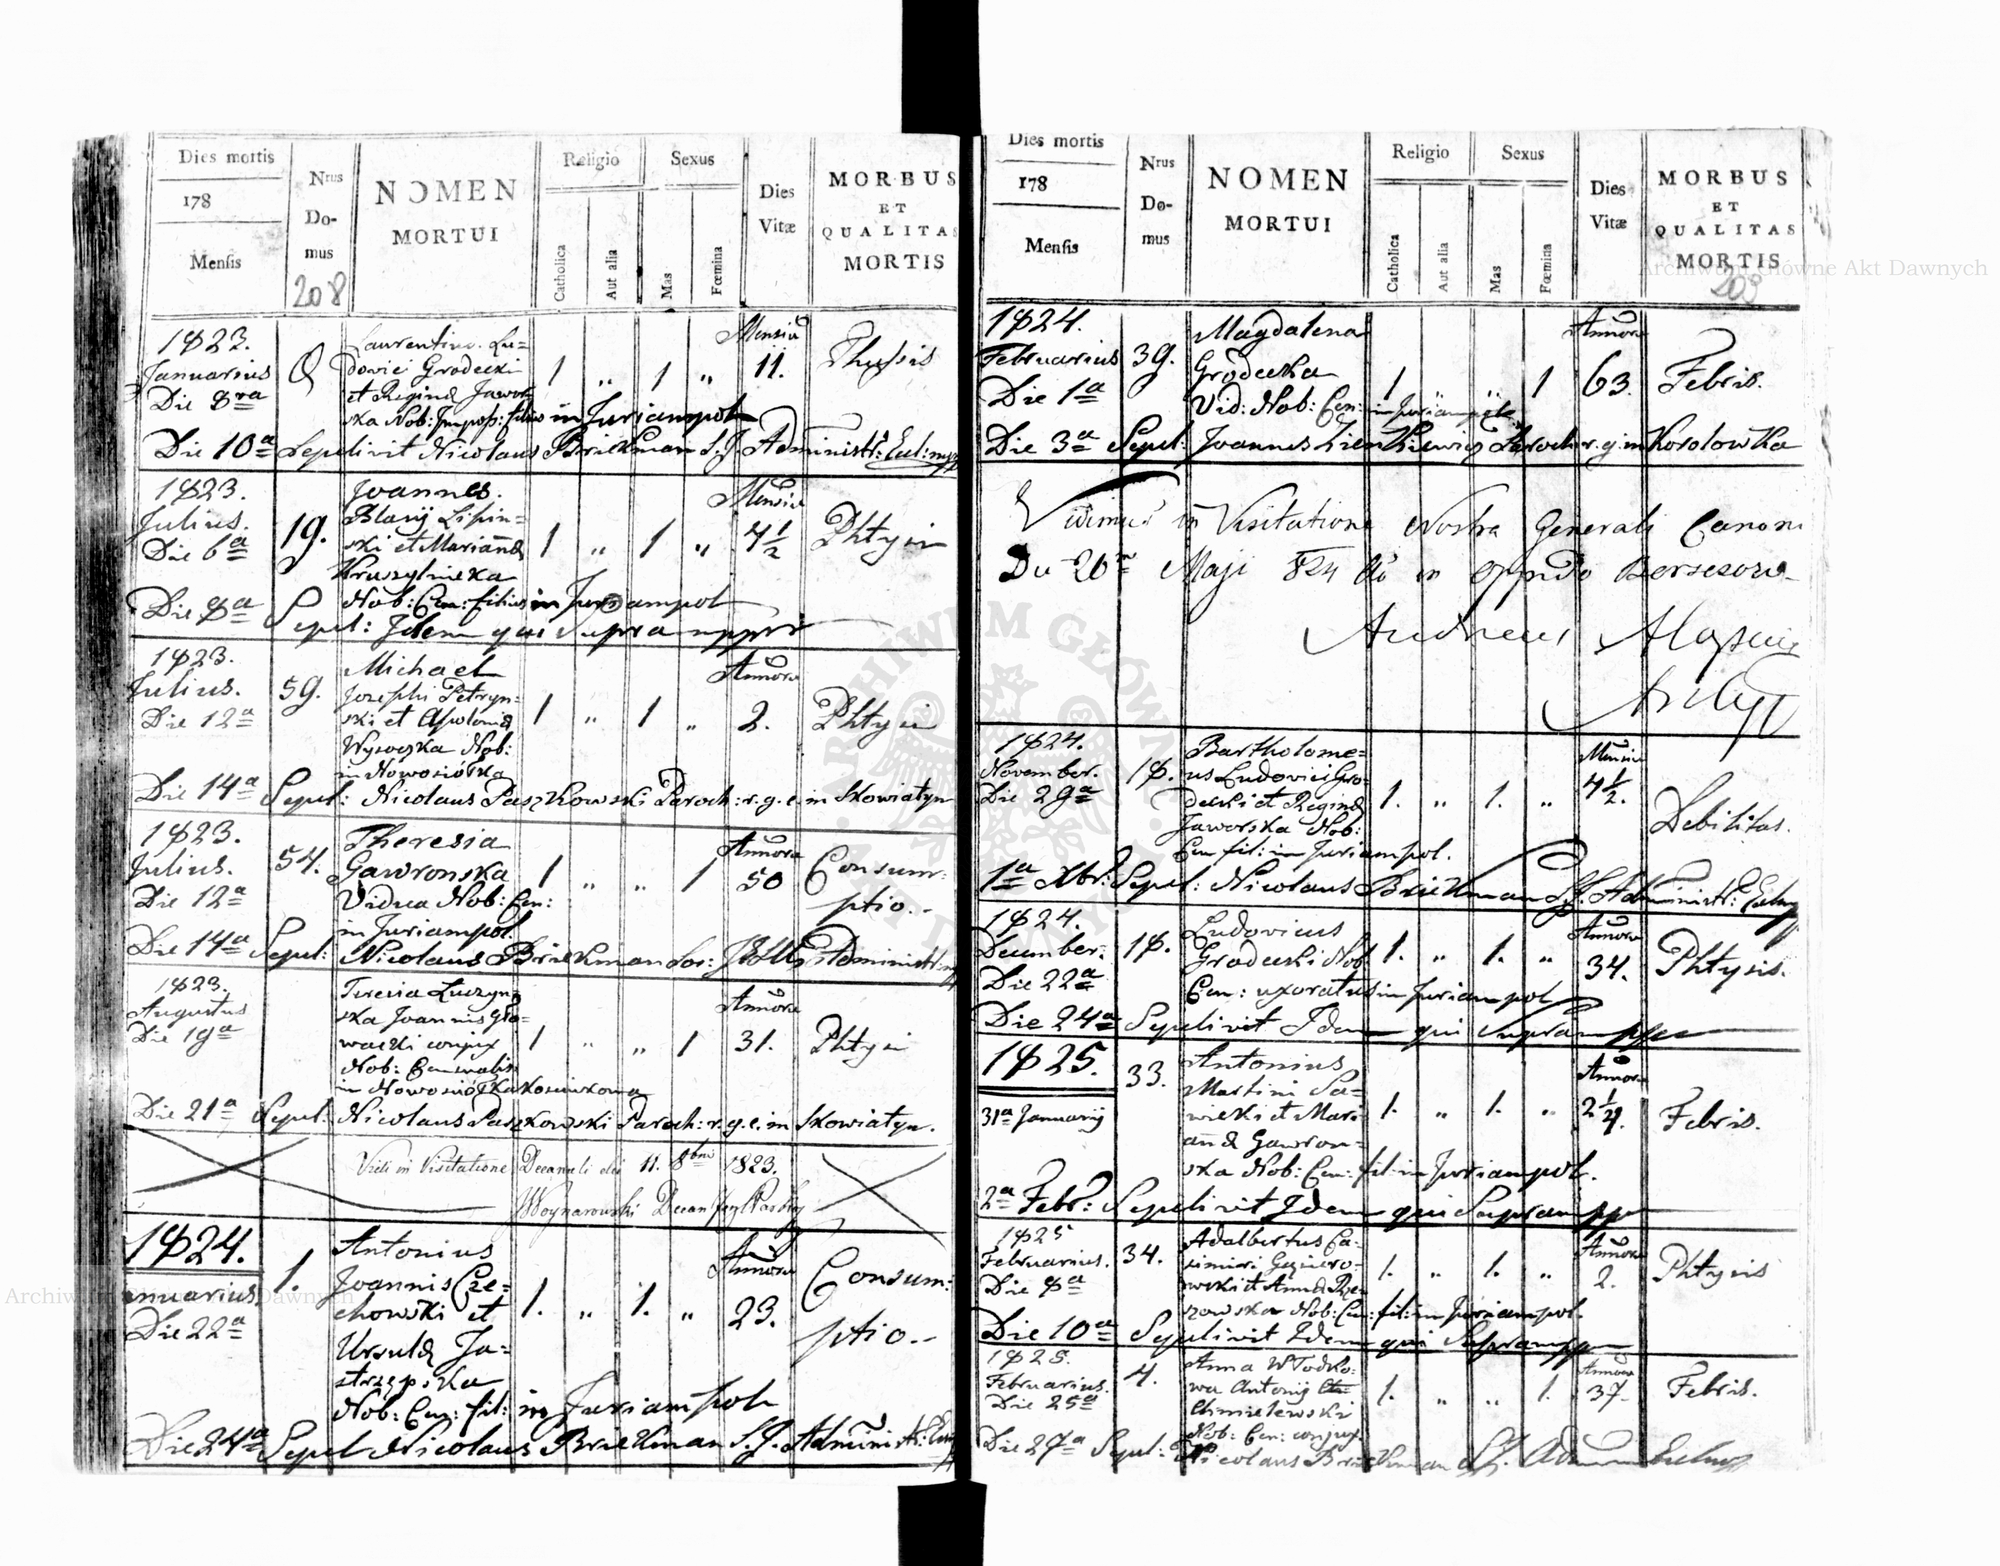 Dies mortis
178
Mensis
Nrus
Do-
mus
208
NOMEN
MORTUI
Religio
Catholica
Aut alia
Sexus
Mas
Fœmina
Dies
Vitæ
MORBUS
ET
QUALITAS
MORTIS
1823.
Januarius
Die 8va
Laurentius Lu-
dovici Grodecki
et Reginæ Jawor
ska Nob: filius in Juriampol
1 " 1 "
Mensiu
11.
Thysis
Die 10a Sepelivit Nicolaus Brickman S.J. Administr:
1823.
Julius.
Die 6a
19.
Joannes.
Blasij Lipin-
ski et Mariannæ
Kruszelnicka
Nob: Cen: filius in Juriampol
1 " 1 "
Mensiu
4 1/2
Phtysis
Die 8a Sepel: Idem qui supra mppr
1823.
Julius.
Die 12a
59.
Michael
Josephi Petryn-
ski et Apolonia
Wysocska Nob:
in Nowosiółka
1 " 1 "
Annoru
2.
Phtysis
Die 14a Sepel: Nicolaus Paszkowski Paroch: r.g.c. in Skowiatyn
1823.
Julius.
Die 12a
54.
Theresia
Gawronska
Vidua Nob: Cen:
in Juriampol.
1 " " 1
Annoru
50
Consum-
ptio.-
Die 14a Sepel: Nicolaus Brickman Administr:
1823.
Augustus
Die 19a
Teresia Luczyn-
ska Joannis Gło-
wacki conjux
Nob: Censualis
in Nowosiółka
1 " " 1
Annoru
31.
Phtysis
Die 21a Sepel: Nicolaus Paszkowski Paroch: r.g.c. in Skowiatyn.
Vidi in Visitatione Decanali die 11. 8bris 1823.
Woynarowski Decan
1824.
Januarius.
Die 22a
1.
Antonius
Joannis Cze-
chowski et
Ursulæ Ja-
strzępska
Nob: Cen: fil: in Juriampol
1. " 1. "
Annoru
23.
Consum:
ptio.-
Die 24a Sepel Nicolaus Brickman S.J. Administr:
Dies mortis
178
Mensis
Nrus
Do-
mus
NOMEN
MORTUI
Religio
Catholica
Aut alia
Sexus
Mas
Fœmina
Dies
Vitæ
MORBUS
ET
QUALITAS
MORTIS
Archiwum Główne Akt Dawnych
1824.
Februarius
Die 1a
39.
Magdalena
Grodecka
Vid: Nob: Cen: in Juriampole
1 " " 1
Annoru
63.
Febris.
Die 3a Sepel: Joannes Paroch r.g. in Korolowka
Vidimus in Visitatione Nostra Generali Canoni
Die 20a Maji 824 in oppido
Andreas
1824.
November.
Die 29a
18.
Bartholome-
us Ludovici Gro-
decki et Reginæ
Jaworska Nob:
Cen fil: in Juriampol.
1. " 1. "
Mensiu
4 1/2.
Debilitas.
1a Xbr: Sepel: Nicolaus Brickman S.J. Administr:
1824.
December:
Die 22a
18.
Ludovicus
Grodecki Nob
Cen: uxoratus in Juriampol
1. " 1. "
Annoru
34.
Phtysis.
Die 24a Sepelivit Idem qui Supra mpp
1825.
31a Januarij
33.
Antonius
Martini Sa-
wicki et Mari
annæ Gawron-
ska Nob: Cen: fil: in Juriampol.
1. " 1. "
Annoru
2 1/4.
Febris.
2a Febr: Sepelivit Idem qui Supra mpp
1825
Februarius.
Die 8a
34.
Adalbertus Ca-
simiri
et Annæ Rze
szowska Nob: Cen: fil: in Juriampol.
1. " 1. "
Annoru
2.
Phtysis
Die 10a Sepelivit Idem qui Supra mpp
1825.
Februarius.
Die 25a
4.
Anna Włodko-
wa Antonij
Chmielewski
Nob: Cen: conjux.
1. " " 1.
Annoru
37.
Febris.
Die 27a Sepel: Nicolaus Brickman S.J.
ARCHIWUM GŁÓWNE AKT DAWNYCH
Archiwum Główne Akt Dawnych